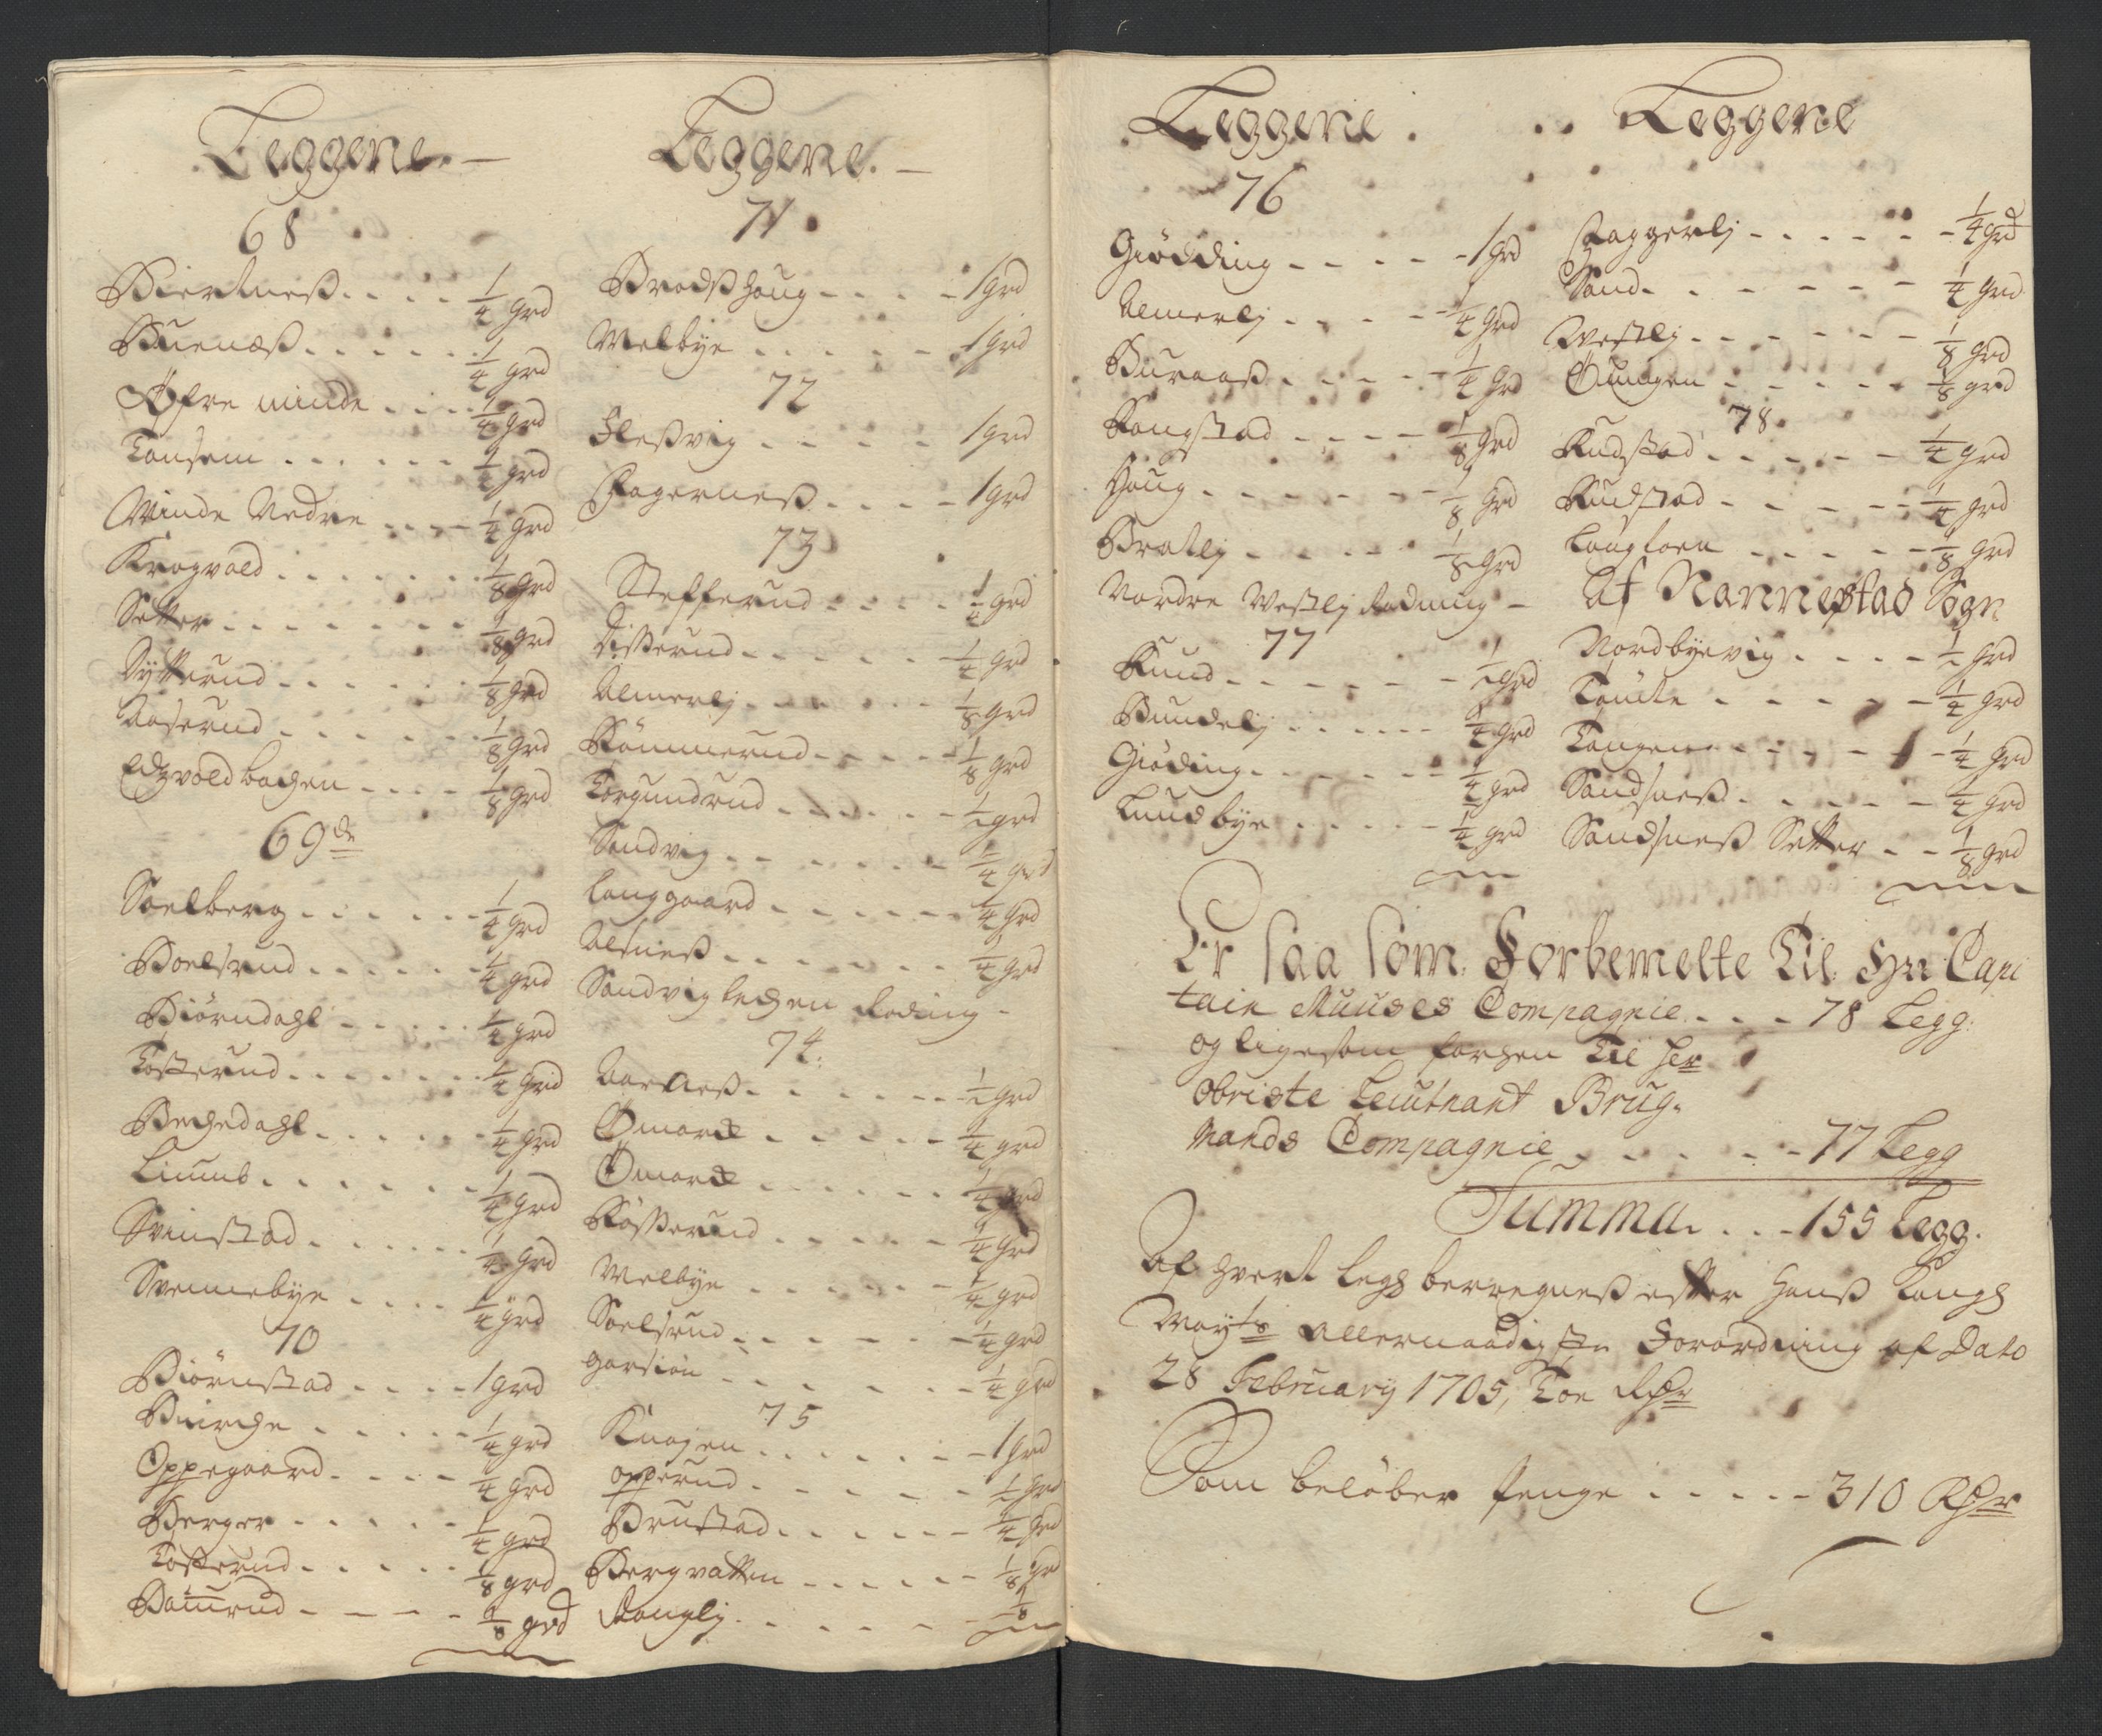 Leggene
68
Biertneß . . . . 1/4 grd
Buenæß . . . . . 1/4 grd
Øfre minde . . . . 1/4 grd
Tonsem . . . . . . 1/4 grd
Minde Nedre . . . 1/4 grd
Krogvold . . . . . . 1/8 grd
Setter . . . . . . . 1/8 grd
Dytterud . . . . . . 1/8 grd
Aaserud . . . . . . 1/8 grd
Edzvold bachen . . . . 1/8 grd
69de
Soelberg . . . . . . 1/4 grd
Boelsrud . . . . . . 1/4 grd
Biørndahl . . . . . 1/4 grd
Tosterud . . . . . . 1/4 grd
Bechedahl . . . . . . 1/4 grd
Liumb . . . . . . 1/4 grd
Svinstad . . . . . . 1/4 grd
Svennebye . . . . 1/4 grd
70
Biørnstad . . . . 1 grd
Biirche . . . . . 1/4 grd
Oppegaard . . . . 1/4 grd
Berger . . . . . 1/4 grd
Tosterud . . . . . 1/8 grd
Dømrud . . . . 1/8 grd
Leggene
71
Brodshoug . . . . 1 grd
Melbye . . . . . 1 grd
72
Fleßvig . . . . . 1 grd
Fagerneß . . . . 1 grd
73
Stefferud . . . . 1/4 grd
Disserud . . . . . 1/4 grd
Almerlj . . . . . . 1/8 grd
Rømmerud . . . . 1/8 grd
Torgundrud . . . . . 1/2 grd
Sandvig . . . . . . 1/4 grd
Langgaard . . . . . 1/4 grd
Alsneß . . . . . . 1/4 grd
Sandvig lechen Ødeing
74
Aarneß . . . . . . 1/2 grd
Omord . . . . . 1/4 grd
Omord . . . . . 1/4 grd
Røsterud . . . . . 1/4 grd
Melbye . . . . . 1/4 grd
Soelsrud . . . . . . 1/4 grd
Garsiøn . . . . . . 1/4 grd
75
Knajen . . . . . . 1 grd
opperud . . . . . 1/2 grd
Brustad . . . . . . 1/4 grd
Bergvatten . . . . . 1/8 grd
Ranglj . . . . . 1/8
Leggene
76
Giødding . . . . . 1 grd
Almerlj . . . . 1/4 grd
Buraaß . . . . . 1/4 grd
Rongstad . . . . 1/8 grd
Houg . . . . . . 1/8 grd
Bratlj . . . . . 1/8 grd
Nordre Westlj Rødning
77
Ruud . . . . . . 1/2 grd
Bundelj . . . . . . 1/4 grd
Giøding . . . . . . 1/4 grd
Lundbye . . . . . 1/4 grd
Leggene
Haggerlj . . . . . . 1/4 grd
Sand . . . . . . 1/4 grd
Westlj . . . . . . 1/8 grd
Øungen . . . . . 1/8 grd
78
Rudstad . . . . . 1/4 grd
Rudstad . . . . . 1/4 grd
Langtoen . . . . . 1/8 grd
Af Nannestad Sogn
Nordbyevig . . . . 1/2 grd
Tømte . . . . . 1/4 grd
Tangen . . . . . 1/4 grd
Sandsneß . . . . . 1/4 grd
Sandsneß Setter . . 1/8 grd
Er saa som forbemelte Til Hrr Capi
tain Muuses Compagnie . . . 78 Legg:
og ligesom forhen Til hr
Obriste Leiutnant Brug-
mands Compagnie . . . . . 77 Legg
Summa . . . 155 Legg.
Af hvert Legg berregneß efter Hanß Kongl
Mayts Allernaadigste Forordning af Dato
28 February 1705, Toe Rdr
Som beløber penge . . . . . 310 Rdr